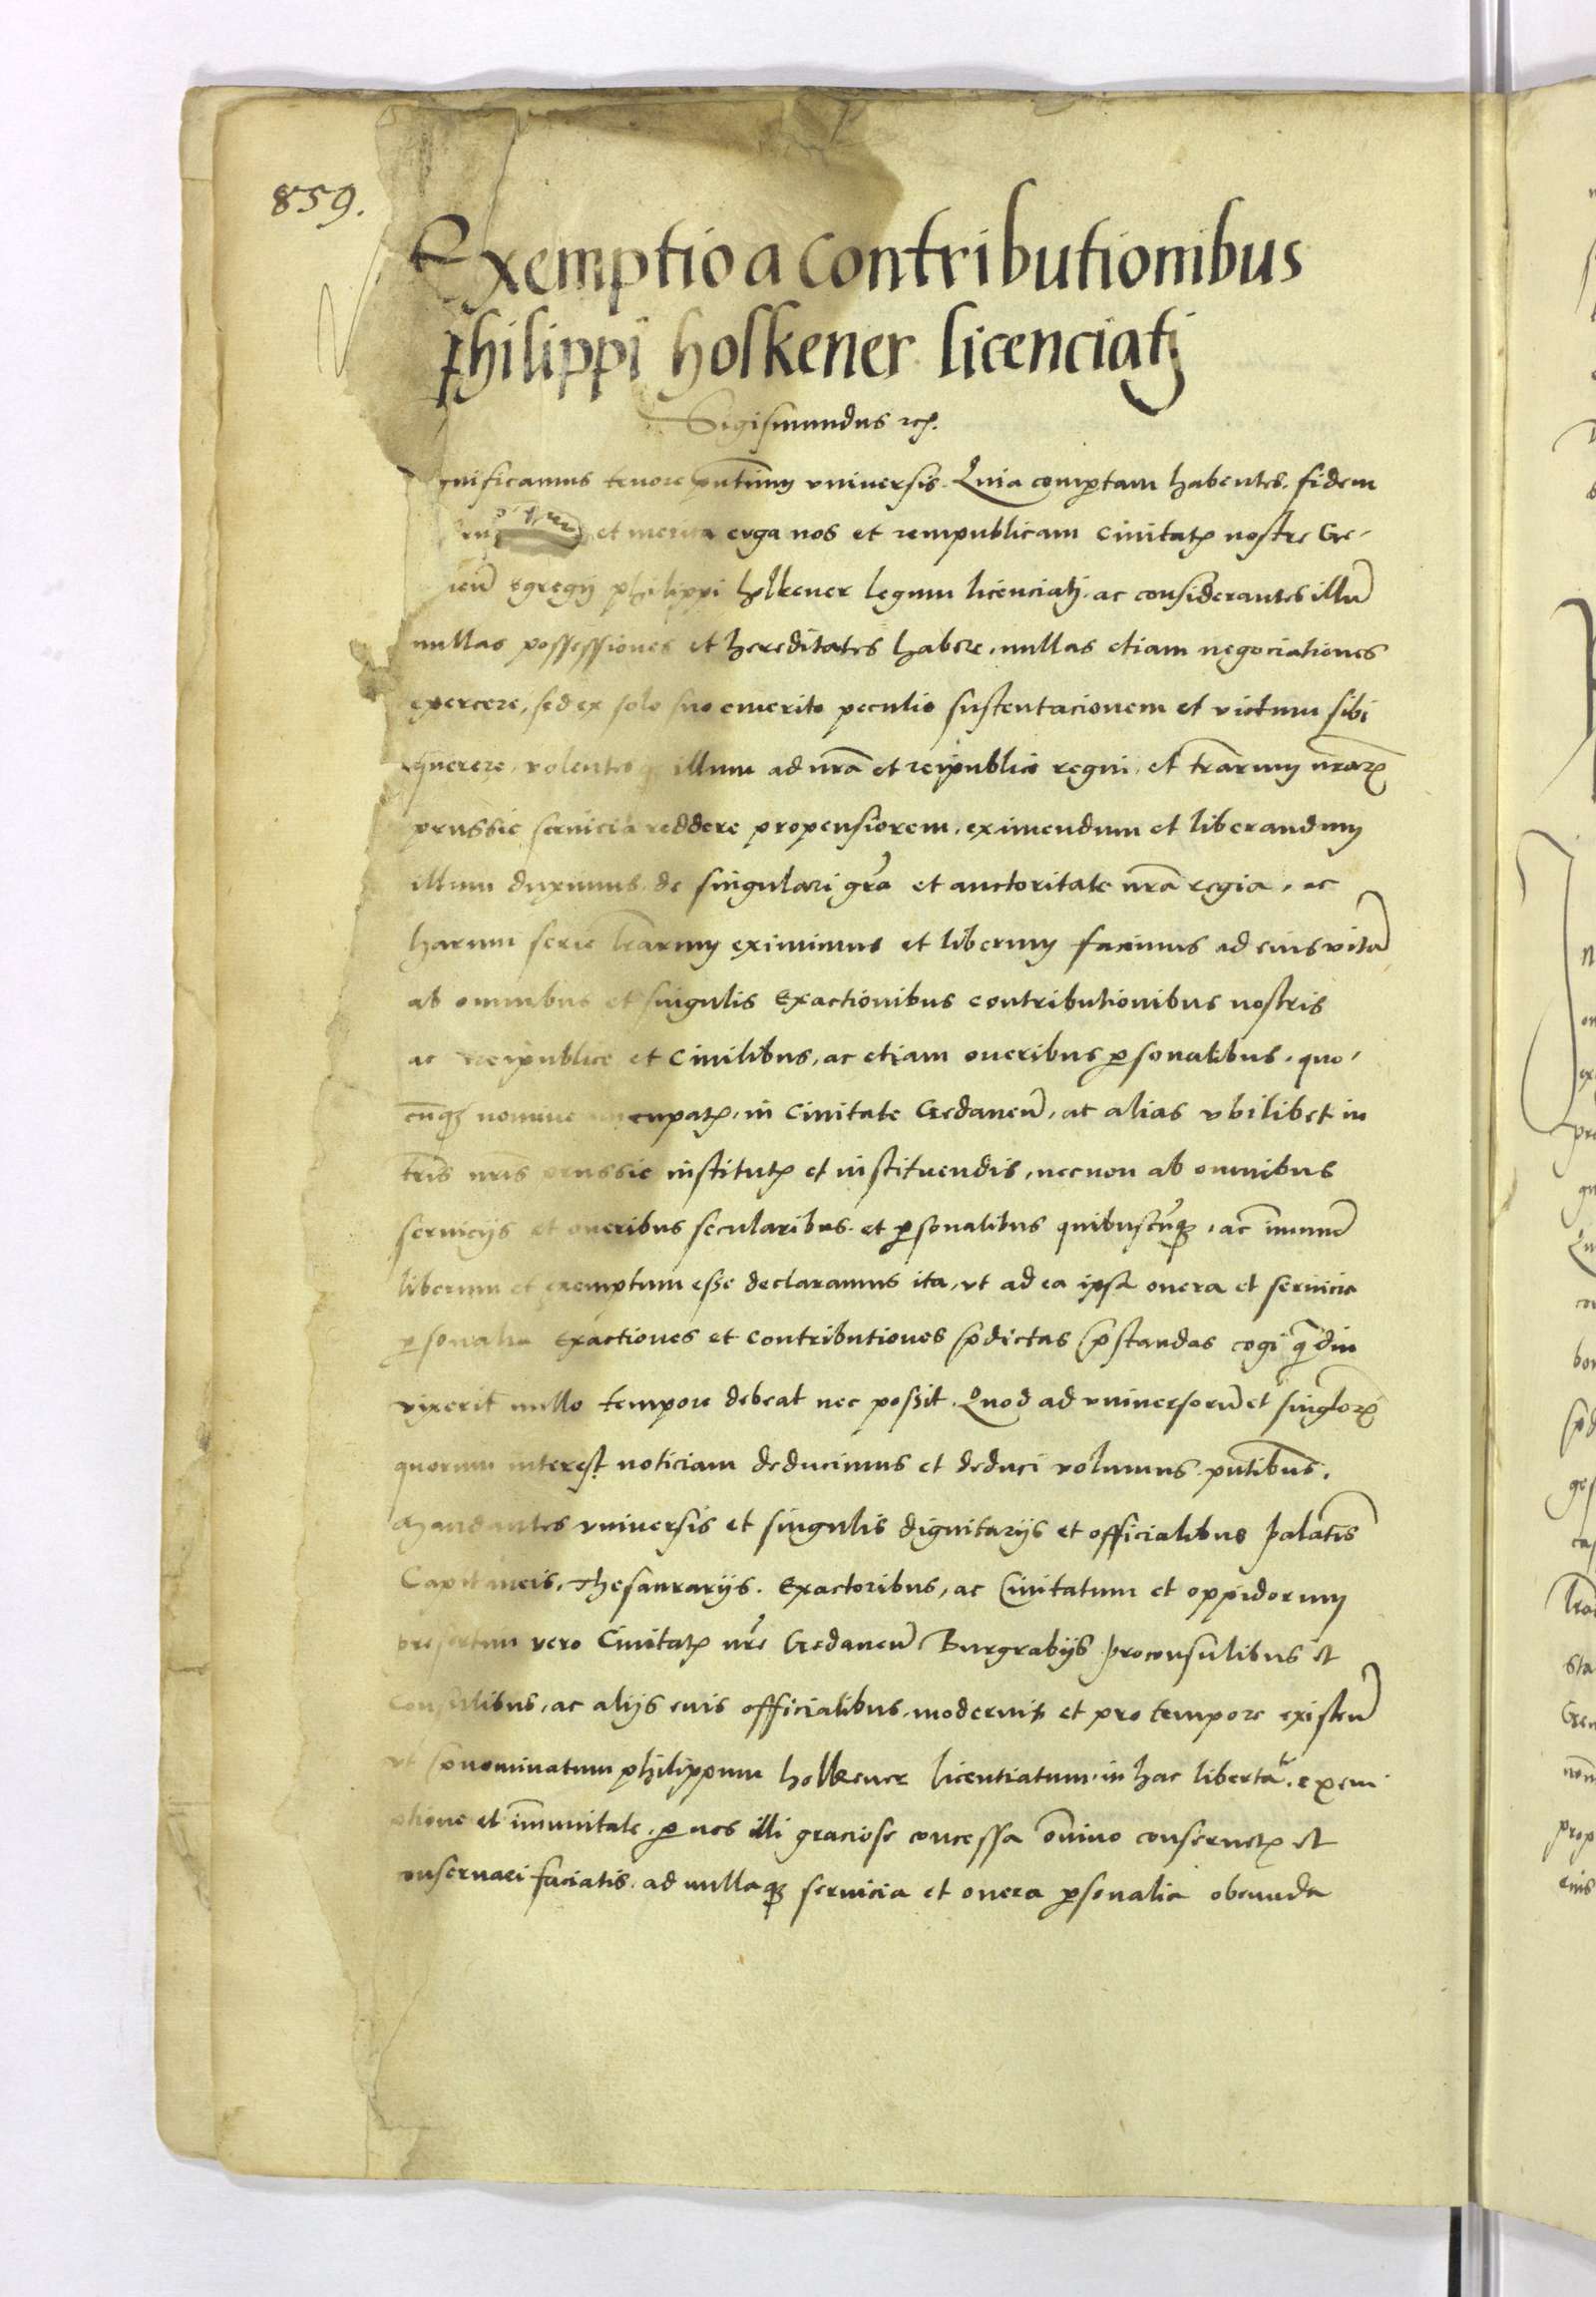 859.
Exemptio a contributionibus
philippi holkener licenciatj
Sigismundus rex.
gnificamus tenore pntium vniversis. Quia compertam habentes fidem
et merita erga nos et rempublicam Civitatis nostre Ge-
neñ egregij philippi holkener legum licenciatj. ac considerantes illũ
nullas possessiones et hereditates habere, nullas etiam negociationes
exercere, sed ex solo suo emerito peculio sustentacionem et victum sibi
querere, volentesq illum ad nrã et reipublice regni, et trarum nrarum
prussie servicia reddere propensiorem, eximendum et liberandum
illum duximus de singulari gra et auctoritate nra regia, ac
harum serie lrarum eximimus et liberum facimus ad eius vitã
ab omnibus et singulis Exactionibus contributionibus nostris
ac reipublice et Civilibus, ac etiam oneribus personalibus, quo-
cunq nomine nuncupatis, in Civitate Gedaneñ, ac alias vbilibet in
tris nris prussie institutis et instituendis, necnon ab omnibus
servicijs et oneribus secularibus et personalibus quibuscunq, ac immunẽ
liberum et exemptum esse declaramus ita, vt ad ea ipsa onera et servicia
personalia Exactiones et contributiones predictas prestandas cogi quamdiu
vixerit nullo tempore debeat nec possit. Quod ad vniversorũ et singlorum
quorum interest noticiam deducimus et deduci volumus pntibus.
Mandantes vniversis et singulis dignitarijs et officialibus palatinis
Capitaneis, Thesaurarijs. Exactoribus, ac Civitatum et oppidorum
presertim vero Civitatis nre Gedaneñ Burgrabijs proconsulibus et
Consulibus, ac alijs euis officialibus, modernis et pro tempore existeñ
vt prenominatum philippum holkener licentiatum in hac libertate, exem
ptione et immunitate, per nos illi graciose concessa omnino conservetis et
onservari faciatis, ad nullaq servicia et onera personalia obeunda